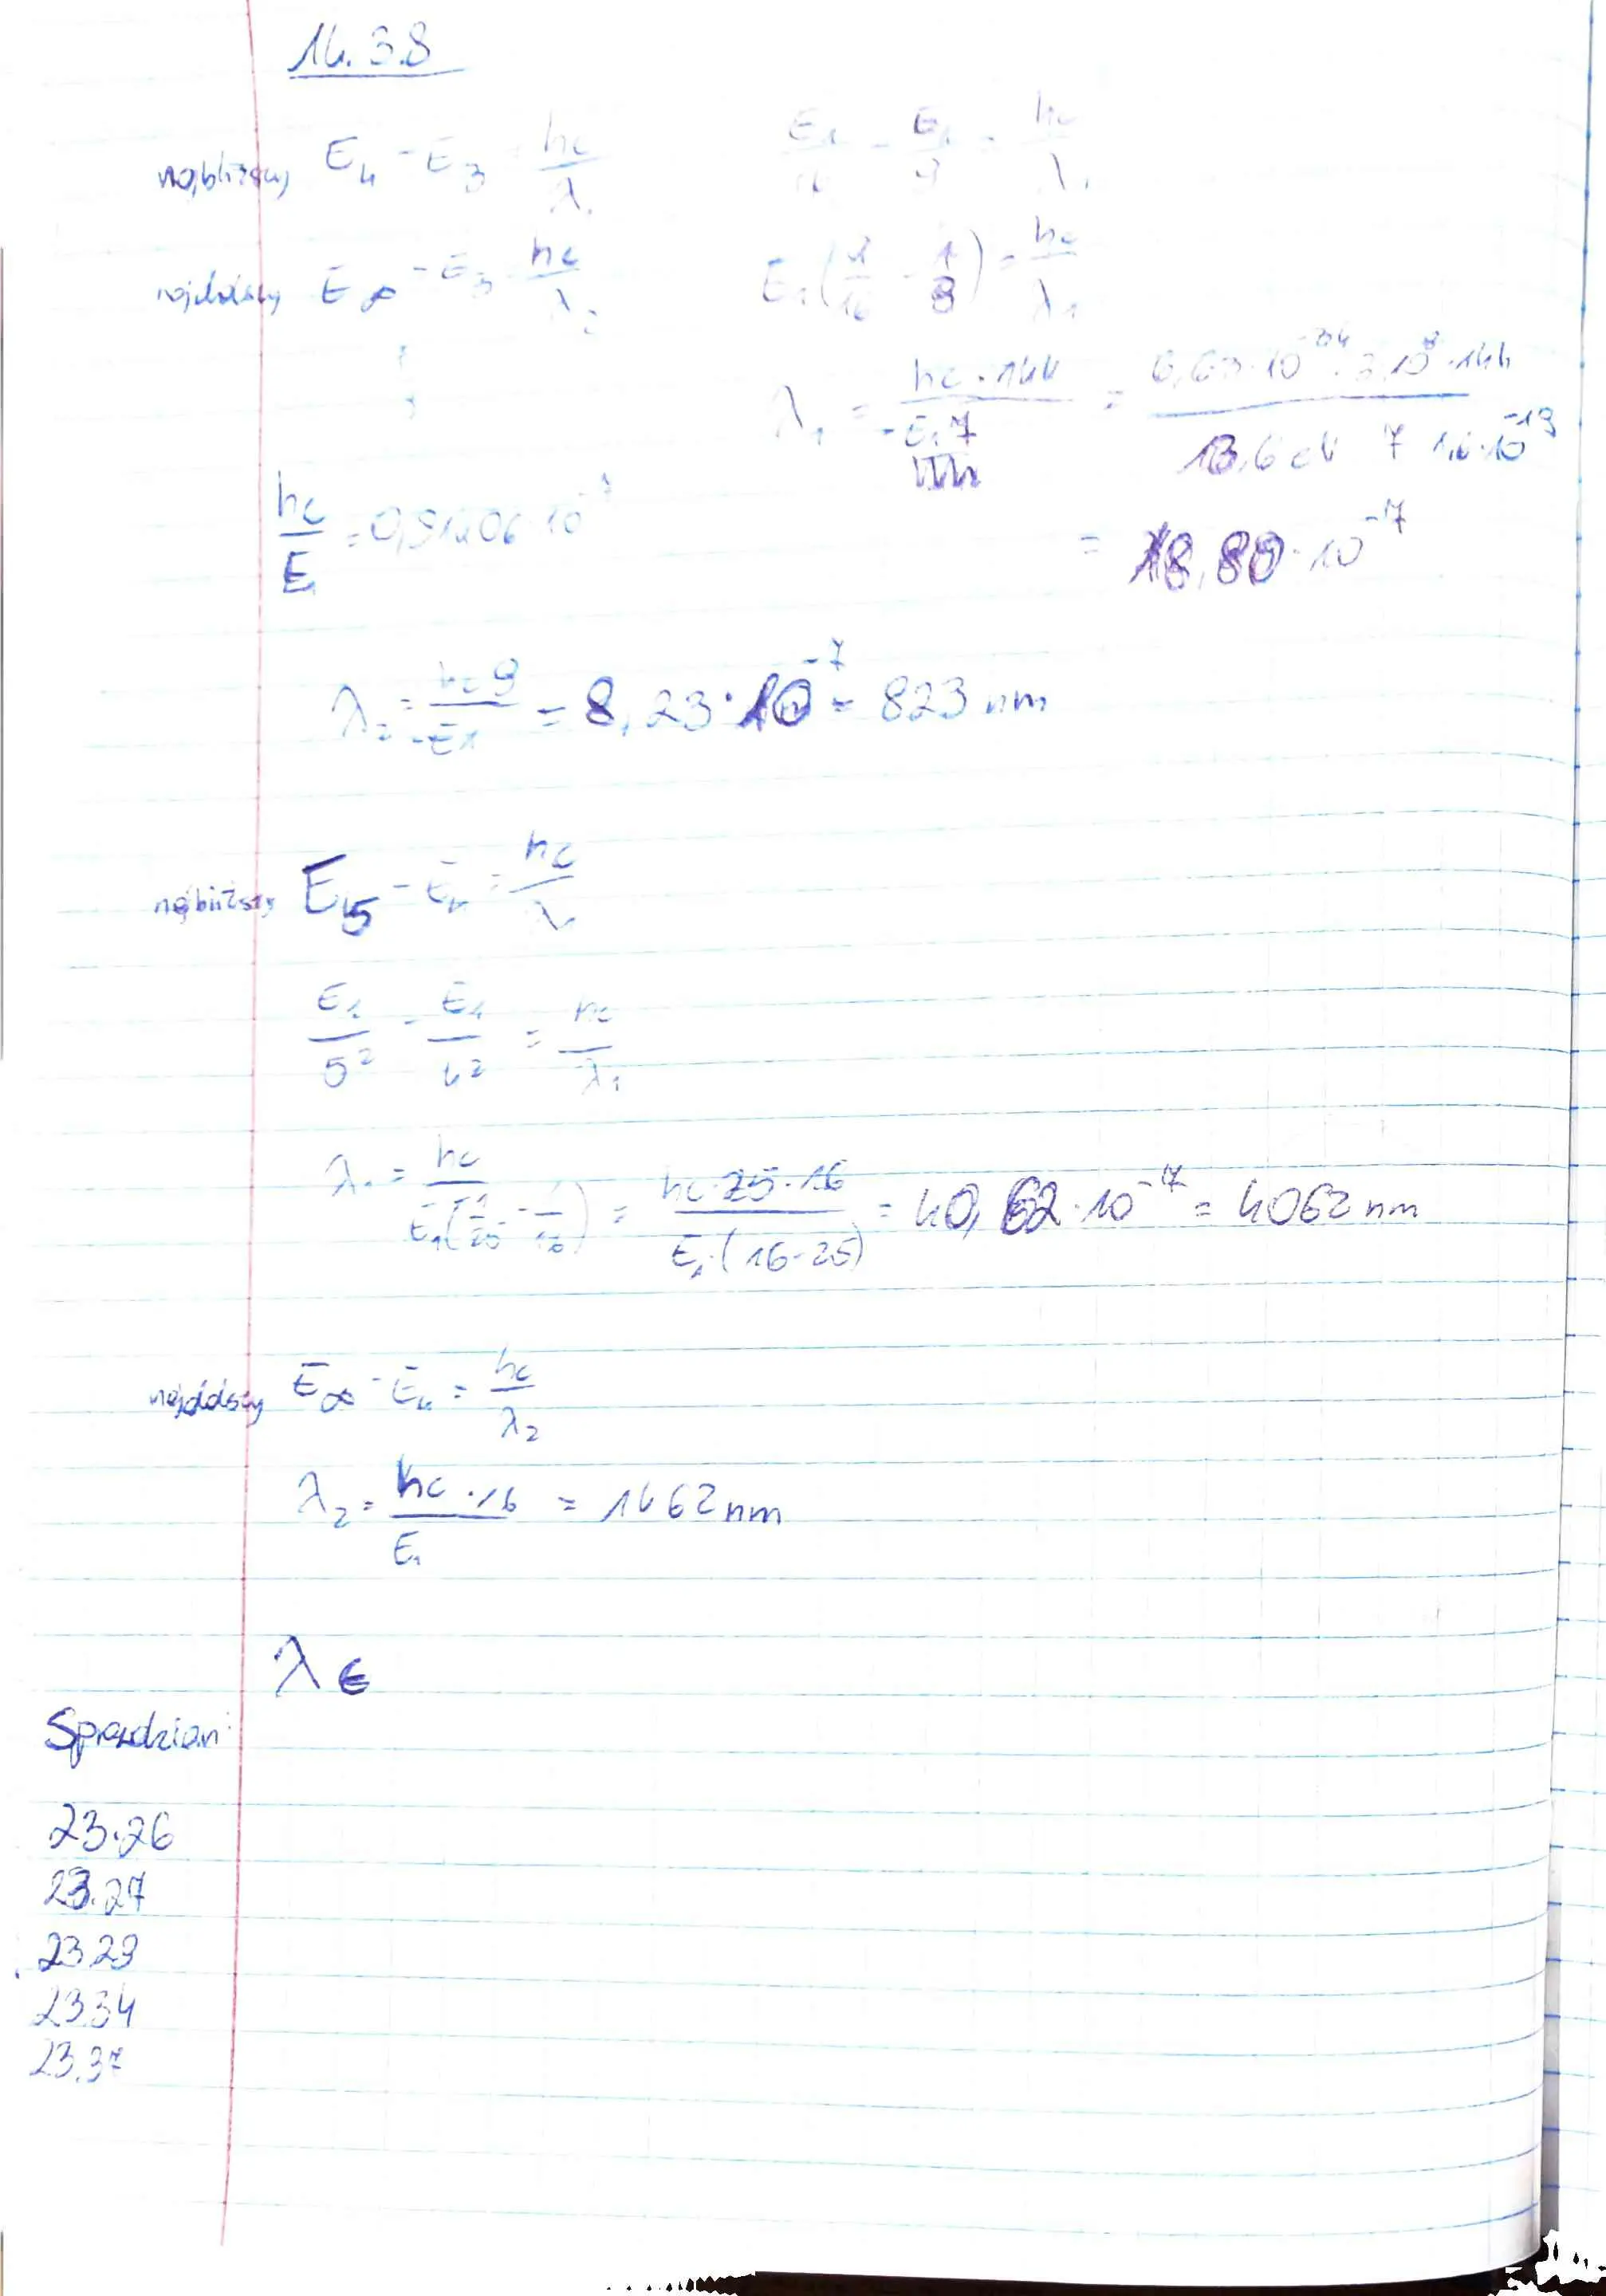 14.3.8
najbliższy E₄ - E₃ = hc/λ₁
E₁/16 - E₁/9 = hc/λ₁
najdalszy E∞ - E₃ = hc/λ₂
E₁(1/16 - 1/9) = hc/λ₁
λ₁ = hc·144/-E₁7 = 6,63·10⁻³⁴·3·10⁸·144/13,6 eV 7 1,6·10⁻¹⁹
hc/E₁ = 0,91406·10⁻⁷
= 18,80·10⁻⁷
λ₂ = hc9/-E₁ = 8,23·10⁻⁷ = 823 nm
najbliższy E₅ - E₄ = hc/λ₁
E₁/5² - E₁/4² = hc/λ₁
λ₁ = hc/E₁(1/25 - 1/16) = hc·25·16/E₁·(16-25) = 40,62·10⁻⁷ = 4062 nm
najdalszy E∞ - E₄ = hc/λ₂
λ₂ = hc·16/E₁ = 1462 nm
λ ∈
Sprawdzian:
23.26
23.27
23.29
23.34
23.37